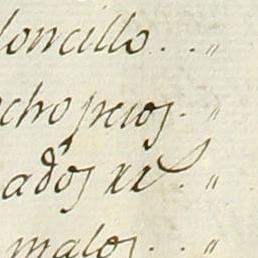 loncillo . . "
cho pesos . "
ados xl . "
malos . . "